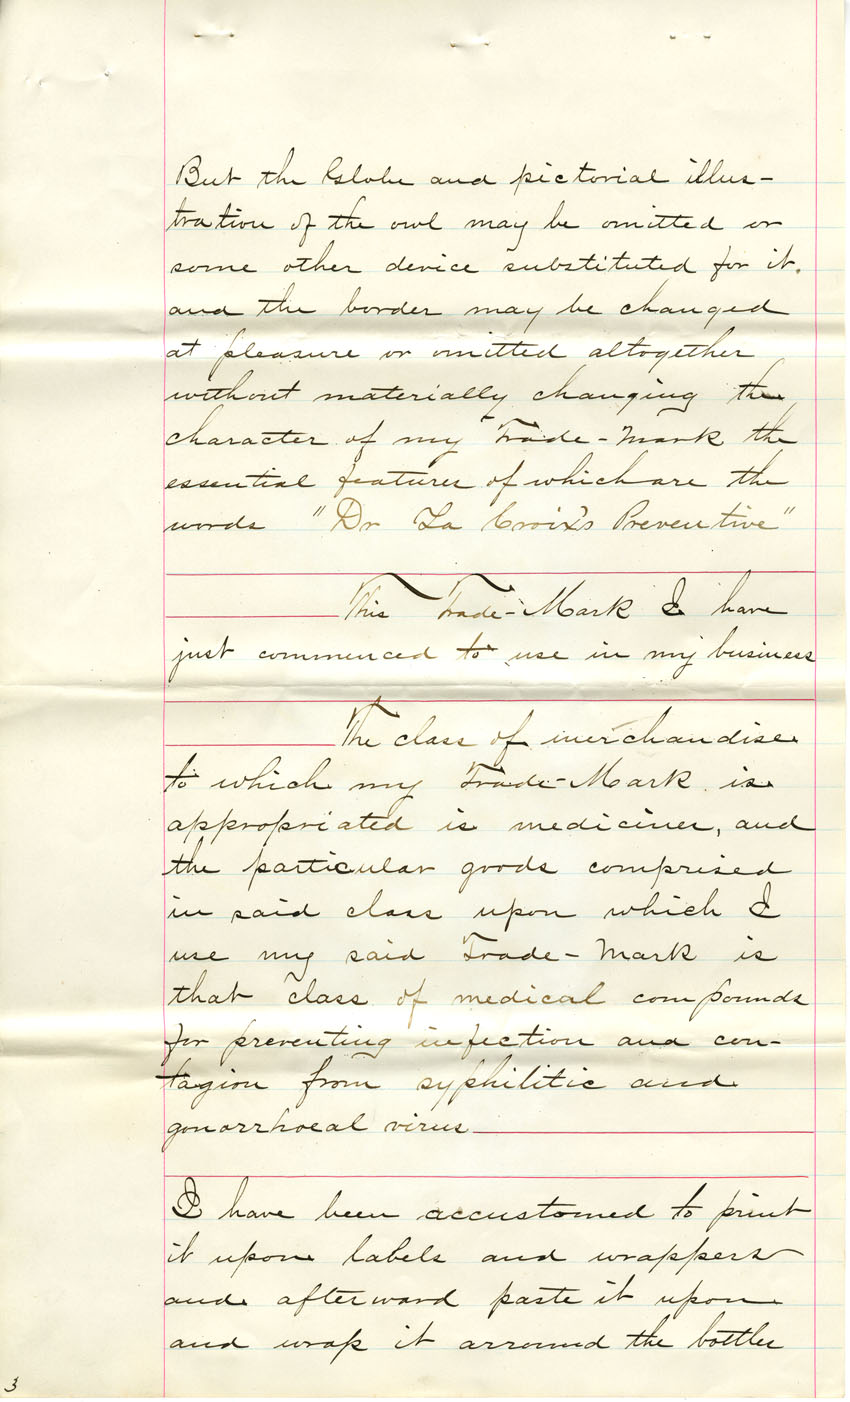 But the Globe and pictorial illus-
tration of the owl may be omitted or
some other device substituted for it.
and the border may be changed
at pleasure or omitted altogether
without materially changing the
character of my Trade-Mark the
essential features of which are the
words "Dr La Croix's Preventive"
This Trade-Mark I have
just commenced to use in my business
The class of merchandise
to which my Trade-Mark is
appropriated is medicines, and
the particular goods comprised
in said class upon which I
use my said Trade-Mark is
that class of medical compounds
for preventing infection and con-
tagion from syphilitic and
gonorrhoeal virus
I have been accustomed to print
it upon labels and wrappers
and afterward paste it upon
and wrap it arround the bottles
3